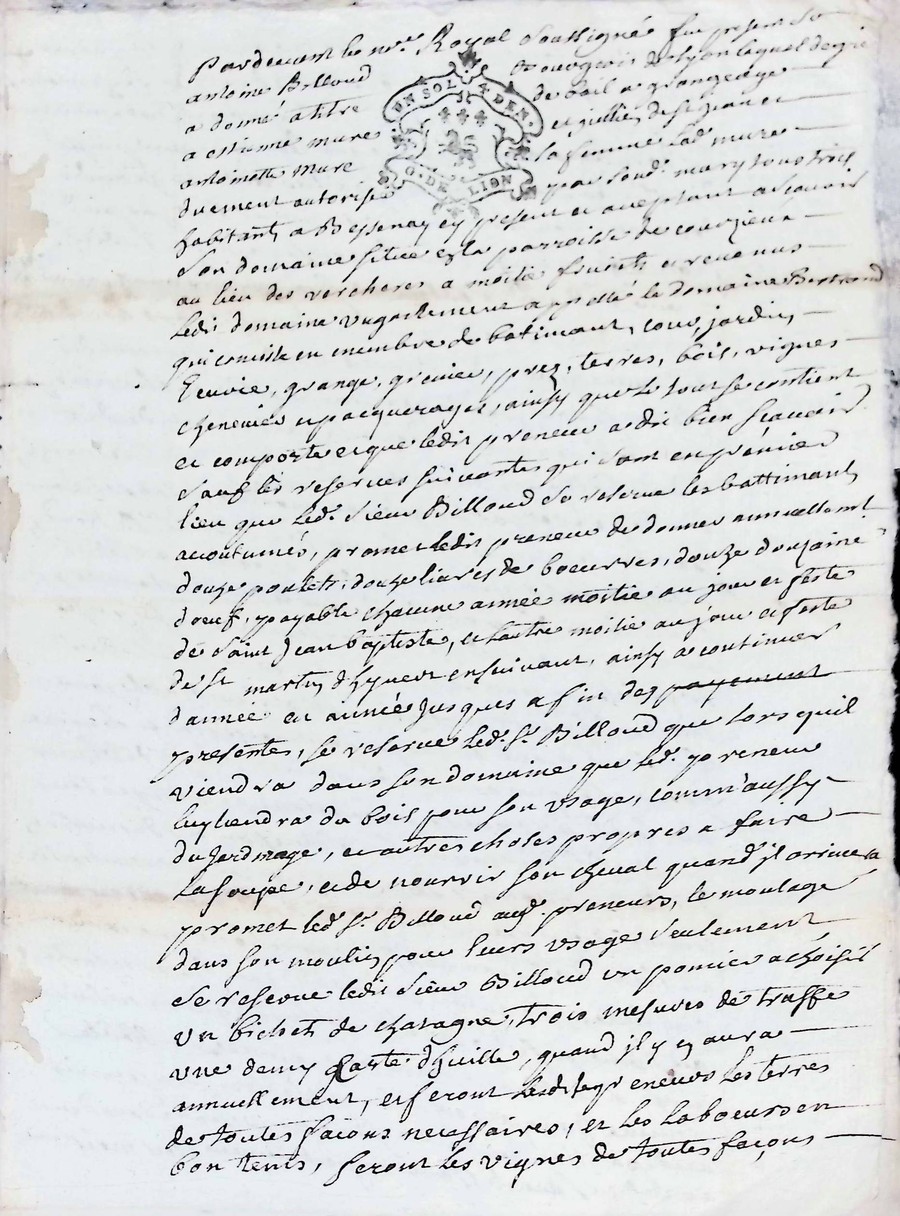 Pardevant le no.re Royal Soussigné fut présent Sr
antoine Billoud Bourgeois de Lyon lequel de gré
a donné a titre de bail a grangeage
a estienne mure et
antoinette mure sa femme lad. mure
duement autorisée par sond. mary tous trois
habitants a Bessenay cy présent et aceptant a scavoir
Son domaine situé en la parroisse de courzieu
au lieu des vercheres a moitié fruits et revenus
ledit domaine vugairement appellé le domaine Bertrand
qui consiste en membre de batimant, cour, jardin,
Ecurie, grange, grenier, prez, terres, bois, vignes
cheneviés et pacquerages, ainsy que le tout se contient
et comporte et que ledit preneur a dit bien sçavoir
Sauf les reserves suivantes qui sont en premier
lieu que led. sieur Billoud se reserve les battimant
acoutumés, promet ledit preneur de donner annuellement
douze poulets, douze livres de boeurres, douze douzaine
d'oeuf, payable chacune année moitié au jour et feste
de Saint Jean baptiste, et l'autre moitié au jour et feste
de St martin d'hyvert ensuivant, ainsy a continuer
d'année en année jusques a fin des payement
presentes, se reserve led. Sr. Billoud que lors quil
viendra dans son domaine que led. preneur
luy tiendra du bois pour son usage, comm'aussy
du Jardinage, et autres choses propres a faire
la soupe, et de nourrir son cheval quand il arrivera
promet led. Sr. Billoud auxd. preneurs, le moulage
dans son moulin pour leurs usage seulement
se reserve ledit sieur Billoud un pomier a choisir
un bichet de chatagne, trois mesures de truffe
une demy d'huille, quand il y en aura
annuellement, et feront lesdits preneurs les terres
de toutes façons necessaires, et les laboeurs en
bon tems, feront les vignes de toutes façons
UN SOL 4 DEN.
G. DE LION